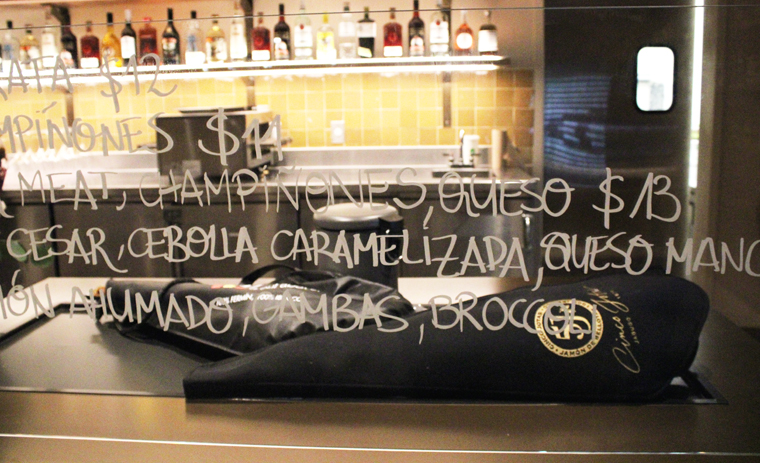 RATA $12
MPIÑONES $11
MEAT, CHAMPIÑONES, QUESO $13
CESAR, CEBOLLA CARAMELIZADA, QUESO MANC
MÓN AHUMADO, GAMBAS, BROCCOLI
5J
Cinco Jotas